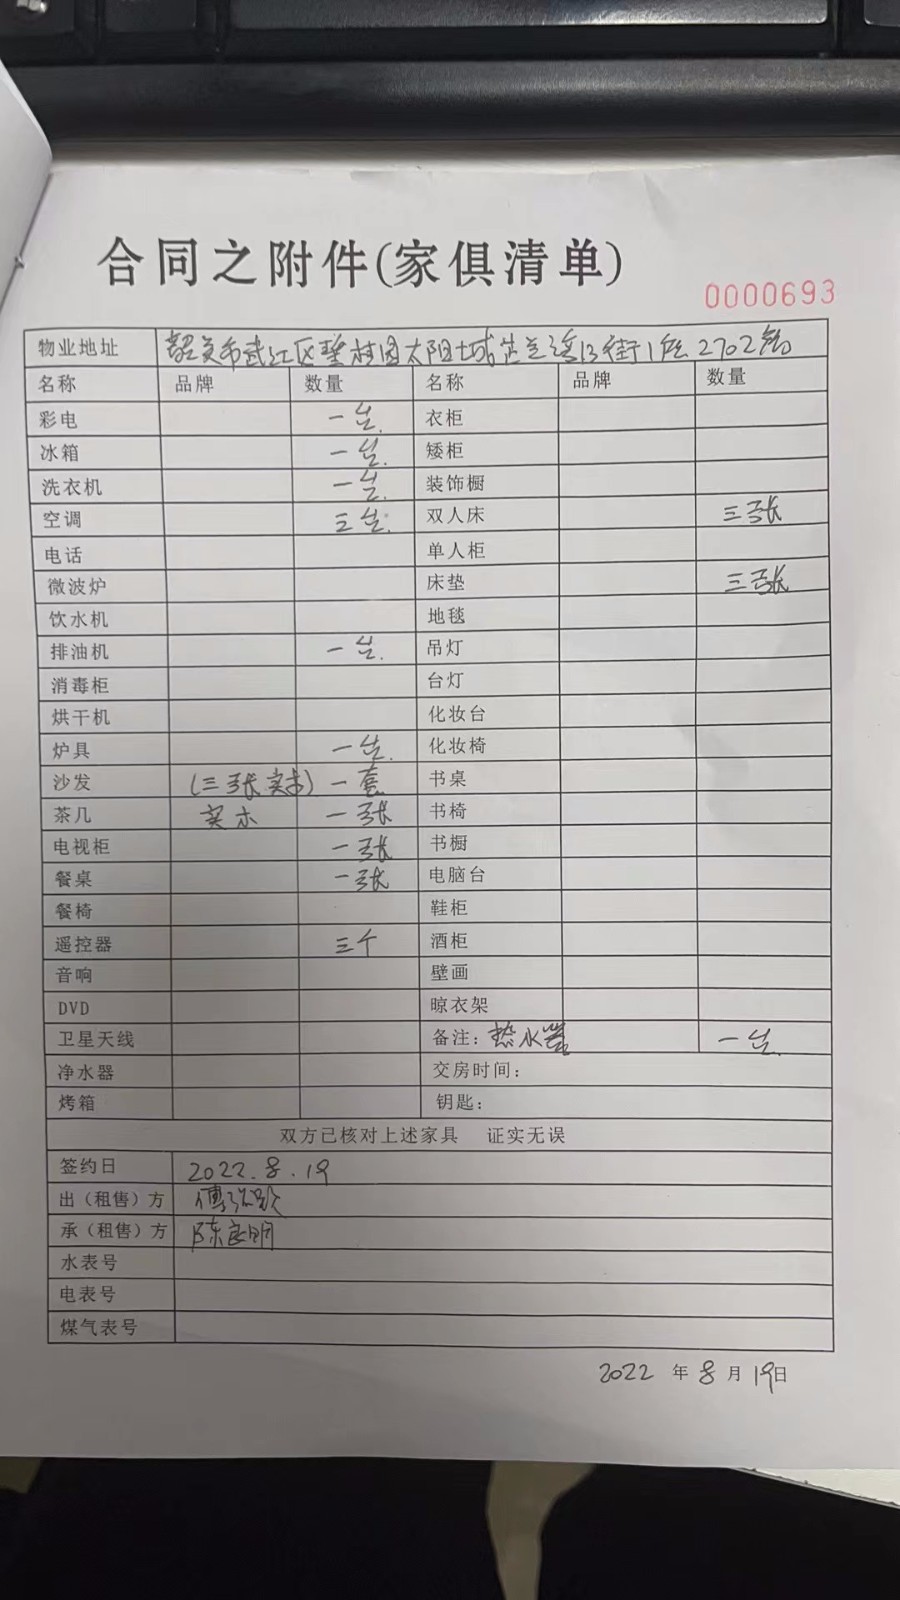 合同之附件(家俱清单)
0000693
物业地址 韶关市武江区碧桂园太阳城芷兰湾13街1座2702房
名称 品牌 数量 名称 品牌 数量
彩电 一台. 衣柜
冰箱 一台. 矮柜
洗衣机 一台. 装饰橱
空调 三台. 双人床 三张
电话 单人柜
微波炉 床垫 三张
饮水机 地毯
排油机 一台. 吊灯
消毒柜 台灯
烘干机 化妆台
炉具 一台. 化妆椅
沙发 (三张实木) 一套 书桌
茶几 实木 一张 书椅
电视柜 一张 书橱
餐桌 一张 电脑台
餐椅 鞋柜
遥控器 三个 酒柜
音响 壁画
DVD 晾衣架
卫星天线 备注: 热水器 一台.
净水器 交房时间:
烤箱 钥匙:
双方已核对上述家具 证实无误
签约日 2022.8.19
出（租售）方 傅
承（租售）方 陈
水表号
电表号
煤气表号
2022 年 8 月 19日